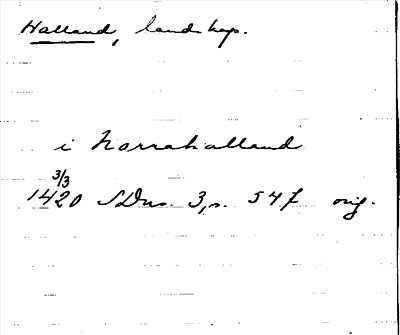 Halland, landskap.
i Norrahalland
3/3
1420 SDns. 3, s. 547 orig.